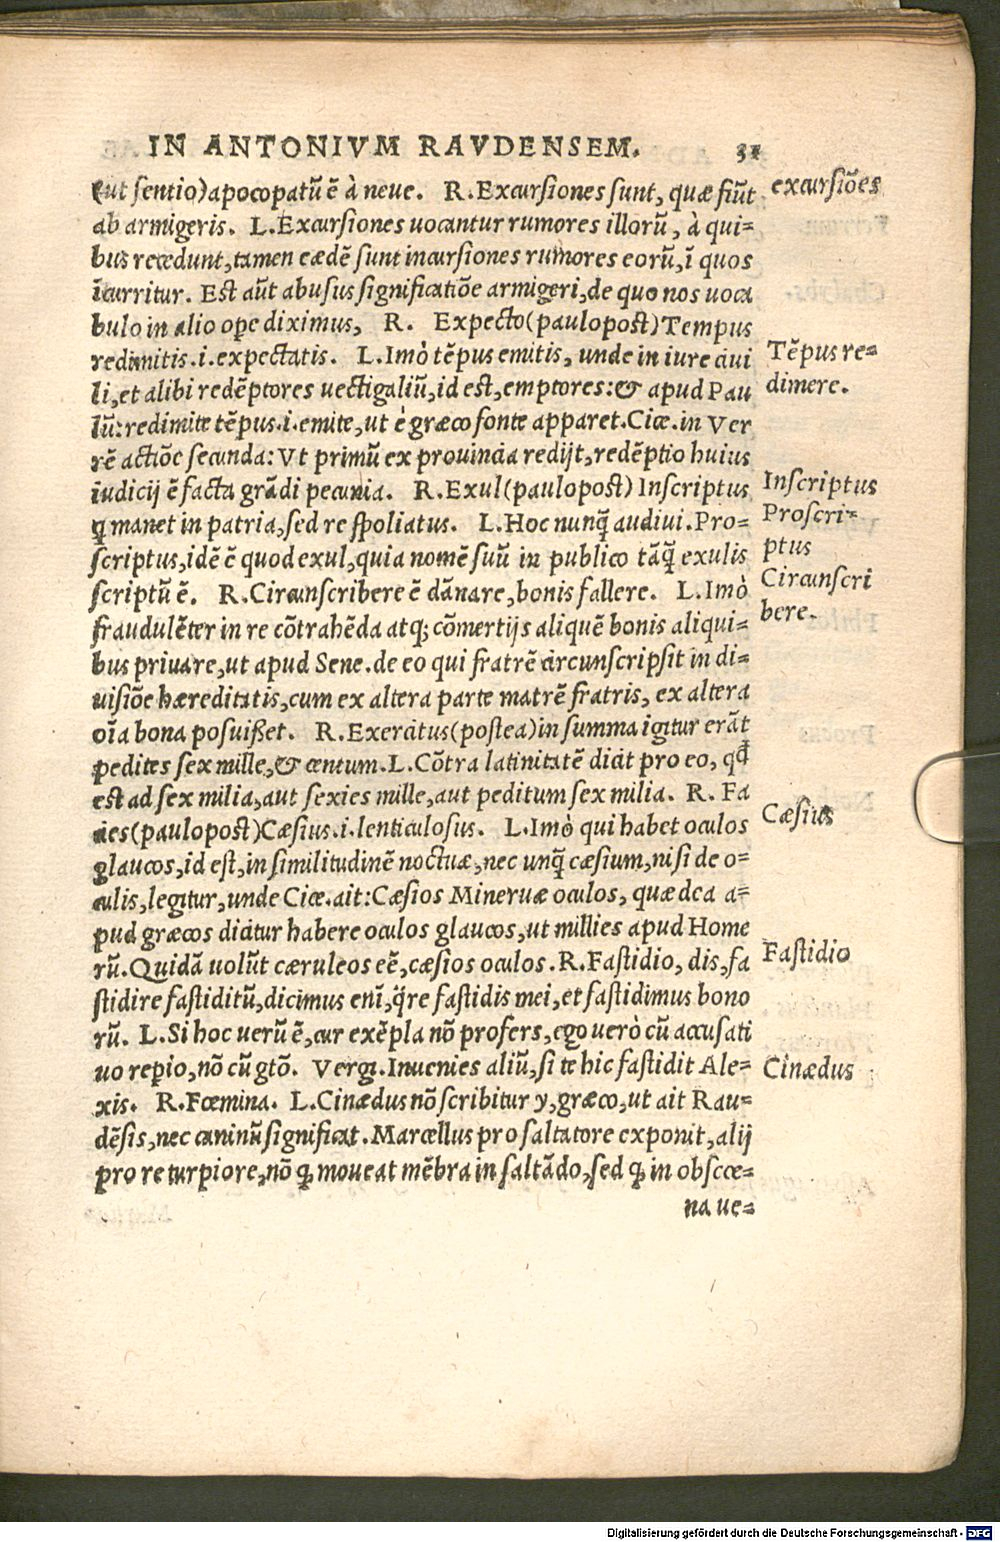 IN ANTONIVM RAVDENSEM. 31
(ut sentio) apocopatũ ẽ à neue. R. Excursiones sunt, quæ fiũt
ab armigeris. L. Excursiones uocantur rumores illorũ, à qui=
bus recedunt, tamen eædẽ sunt incursiones rumores eorũ, ĩ quos
ĩcurritur. Est aũt abusus significatiõe armigeri, de quo nos uoca
bulo in alio ope diximus, R. Expecto (paulopost) Tempus
redimitis .i. expectatis. L. Imò tẽpus emitis, unde in iure ciui
li, et alibi redẽptores uectigaliũ, id est, emptores: & apud Pau
lũ: redimite tẽpus .i. emite, ut è græco fonte apparet. Cice. in Ver
rẽ actiõe secunda: Vt primũ ex prouincia redijt, redẽptio huius
iudicij ẽ facta grãdi pecunia. R. Exul (paulopost) Inscriptus
ꝗ manet in patria, sed re spoliatus. L. Hoc nunꝗ̃ audiui. Pro=
scriptus, idẽ ẽ quod exul, quia nomẽ suũ in publico tãꝗ̃ exulis
scriptũ ẽ. R. Circunscribere ẽ dãnare, bonis fallere. L. Imò
fraudulẽter in re cõtrahẽda atq; cõmertijs aliquẽ bonis aliqui=
bus priuare, ut apud Sene. de eo qui fratrẽ circunscripsit in di=
uisiõe hæreditatis, cum ex altera parte matrẽ fratris, ex altera
oĩa bona posuißet. R. Exercitus (postea) in summa igitur erãt
pedites sex mille, & centum. L. Cõtra latinitatẽ dicit pro eo, qđ
est ad sex milia, aut sexies mille, aut peditum sex milia. R. Fa
cies (paulopost) Cæsius .i. lenticulosus. L. Imò qui habet oculos
glaucos, id est, in similitudinẽ noctuæ, nec unꝗ̃ cæsium, nisi de o=
culis, legitur, unde Cice. ait: Cæsios Mineruæ oculos, quæ dea a=
pud græcos dicitur habere oculos glaucos, ut millies apud Home
rũ. Quidã uolũt cæruleos eẽ, cæsios oculos. R. Fastidio, dis, fa
stidire fastiditũ, dicimus enĩ, q̃re fastidis mei, et fastidimus bono
rũ. L. Si hoc uerũ ẽ, cur exẽpla nõ profers, ego uerò cũ accusati
uo reperio, nõ cũ gtõ. Verg. Inuenies aliũ, si te hic fastidit Ale=
xis. R. Fœmina. L. Cinædus nõ scribitur y, græco, ut ait Rau=
dẽsis, nec caninũ significat. Marcellus pro saltatore exponit, alij
pro re turpiore, nõ ꝙ moueat mẽbra in saltãdo, sed ꝙ in obscœ=
na ue=
excursiões
Tẽpus re=
dimere.
Inscriptus
Proscri=
ptus
Circunscri
bere.
Cæsius
Fastidio
Cinædus
Digitalisierung gefördert durch die Deutsche Forschungsgemeinschaft - DFG